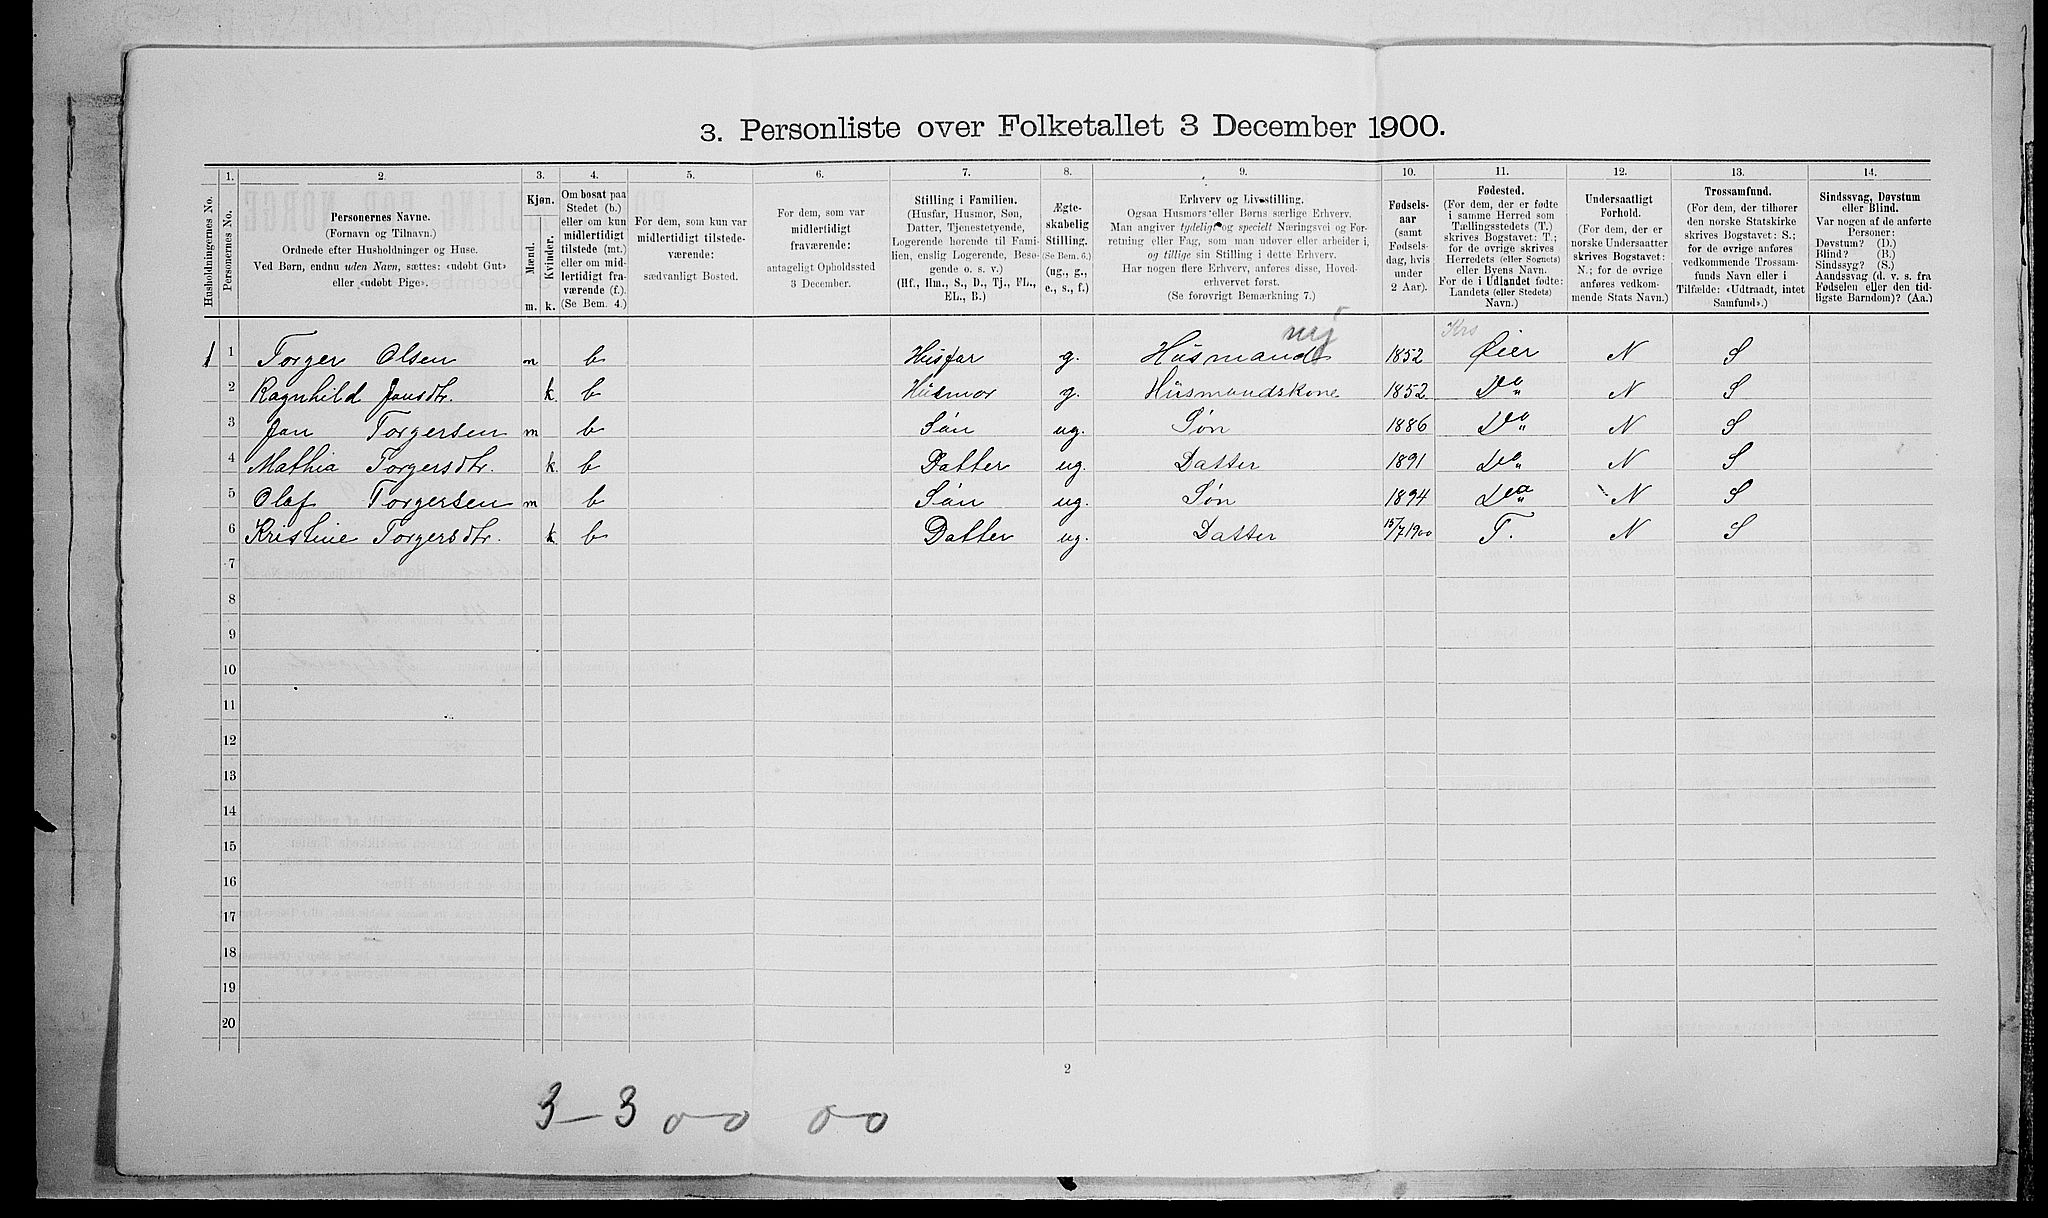 3. Personliste over Folketallet 3 December 1900.
Husholdningernes No.
1.
Personernes No.
2.
Personernes Navne.
(Fornavn og Tilnavn.)
Ordnede efter Husholdninger og Huse.
Ved Børn, endnu uden Navn, sættes: «udøbt Gut»
eller «udøbt Pige».
3.
Kjøn.
Mænd.
Kvinder.
m. k.
4.
Om bosat paa
Stedet (b.)
eller om kun
midlertidigt
tilstede (mt.)
eller om mid-
lertidigt fra-
værende (f.).
(Se Bem. 4.)
5.
For dem, som kun var
midlertidigt tilstede-
værende:
sædvanligt Bosted.
6.
For dem, som var
midlertidigt
fraværende:
antageligt Opholdssted
3 December.
7.
Stilling i Familien.
(Husfar, Husmor, Søn,
Datter, Tjenestetyende,
Logerende hørende til Fami-
lien, enslig Logerende, Besø-
gende o. s. v.)
(Hf., Hm., S., D., Tj., FL.,
EL., B.)
8.
Ægte-
skabelig
Stilling.
(Se Bem. 6.)
(ug., g.,
e., s., f.)
9.
Erhverv og Livsstilling.
Ogsaa Husmors eller Børns særlige Erhverv.
Man angiver tydeligt og specielt Næringsvei og For-
retning eller Fag, som man udøver eller arbeider i,
og tillige sin Stilling i dette Erhverv.
Har nogen flere Erhverv, anføres disse, Hoved-
erhvervet først.
(Se forøvrigt Bemærkning 7.)
10.
Fødsels-
aar
(samt
Fødsels-
dag, hvis
under
2 Aar).
11.
Fødested.
(For dem, der er fødte
i samme Herred som
Tællingsstedets (T.)
skrives Bogstavet: T.;
for de øvrige skrives
Herredets (eller Sognets)
eller Byens Navn.
For de i Udlandet fødte:
Landets (eller Stedets)
Navn.)
12.
Undersaatligt
Forhold.
(For dem, der er
norske Undersaatter
skrives Bogstavet:
N.; for de øvrige
anføres vedkom-
mende Stats Navn.)
13.
Trossamfund.
(For dem, der tilhører
den norske Statskirke
skrives Bogstavet: S.;
for de øvrige anføres
vedkommende Trossam-
funds Navn eller i
Tilfælde: «Udtraadt, intet
Samfund».)
14.
Sindssvag, Døvstum
eller Blind.
Var nogen af de anførte
Personer:
Døvstum? (D.)
Blind? (B.)
Sindssyg? (S.)
Aandssvag (d. v. s. fra
Fødselen eller den tid-
ligste Barndom)? (Aa.)
1 1 Torger Olsen m b Husfar g. Husmand 1852 Øier N S
2 Ragnhild Jansdtr. k b Husmor g. Husmandskone 1852 Do N S
3 Jan Torgersen m b Søn ug. Søn 1886 Do N S
4 Mathia Torgersdtr. k b Datter ug. Datter 1891 Do N S
5 Olaf Torgersen m b Søn ug. Søn 1894 Do N S
6 Kristine Torgersdtr. k b Datter ug. Datter 15/7 1900 T. N S
7
8
9
10
11
12
13
14
15
16
17
18
19
20
2
3–3 0–0 0–0